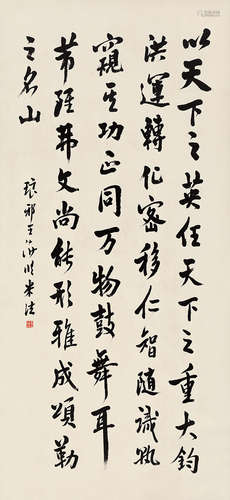 以天下之英任天下之重大鈞
洪運轉化密移仁智随識孰
窺其功正同万物鼓舞耳
芾雖文尚能形雅成頌勒
之名山
琅邪王米法